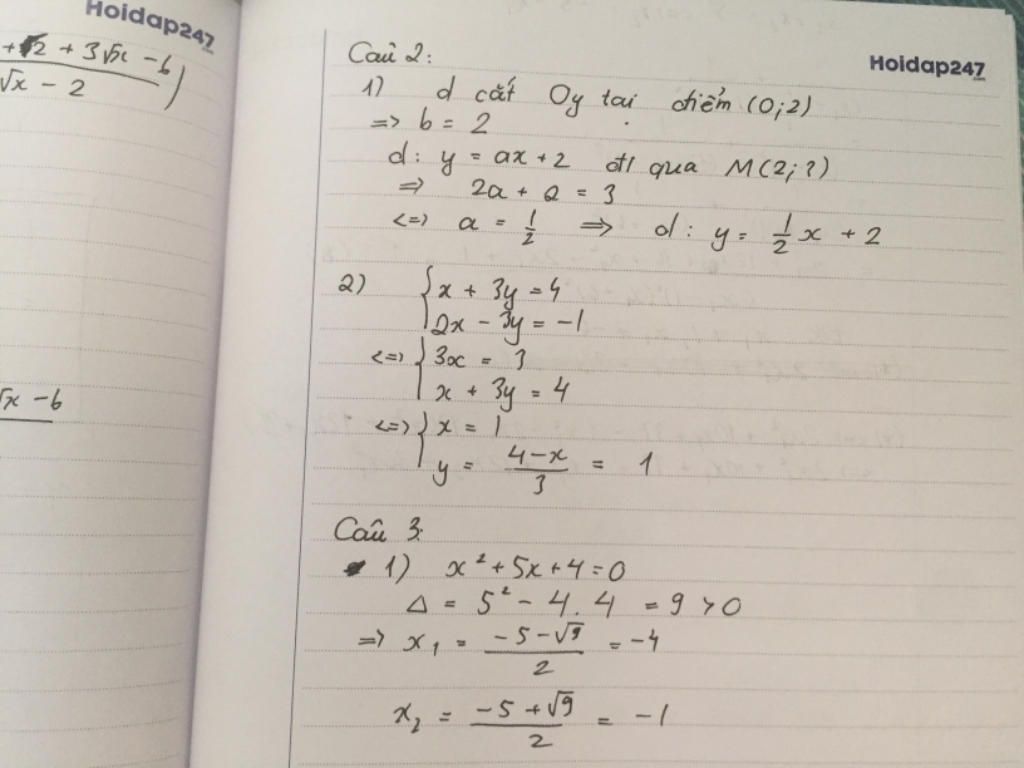 Hoidap247
+√2 + 3√x - 6
√x - 2 )
√x - 6
Hoidap247
Câu 2:
1) d cắt Oy tại điểm (0;2)
=> b = 2
d: y = ax + 2 đi qua M(2;?)
=> 2a + 2 = 3
<=> a = 1/2 => d: y = 1/2 x + 2
2) { x + 3y = 4
2x - 3y = -1
<=> { 3x = 3
x + 3y = 4
<=> { x = 1
y = (4-x)/3 = 1
Câu 3.
1) x² + 5x + 4 = 0
Δ = 5² - 4.4 = 9 > 0
=> x₁ = (-5-√9)/2 = -4
x₂ = (-5+√9)/2 = -1